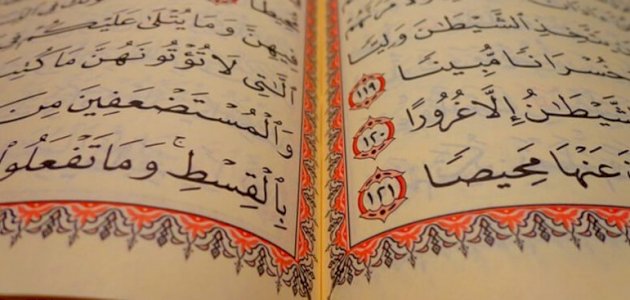 يَتَّخِذِ ٱلشَّيْطَٰنَ وَلِيًّا
خُسْرَانًا مُّبِينًا ١١٩
ٱلشَّيْطَٰنُ إِلَّا غُرُورًا ١٢٠
عَنْهَا مَحِيصًا ١٢١
فِيهِنَّ وَمَا يُتْلَىٰ عَلَيْكُمْ
ٱلَّٰتِى لَا تُؤْتُونَهُنَّ مَا كُتِبَ
وَٱلْمُسْتَضْعَفِينَ مِنَ
بِٱلْقِسْطِ ۚ وَمَا تَفْعَلُوا۟